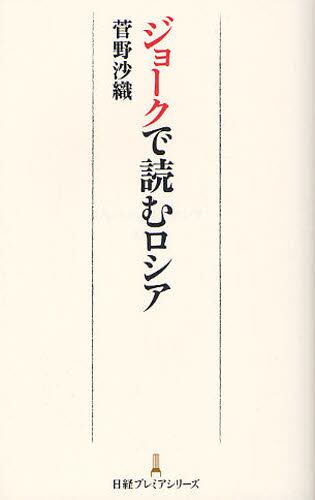 ジョークで読むロシア
菅野沙織
日経プレミアシリーズ